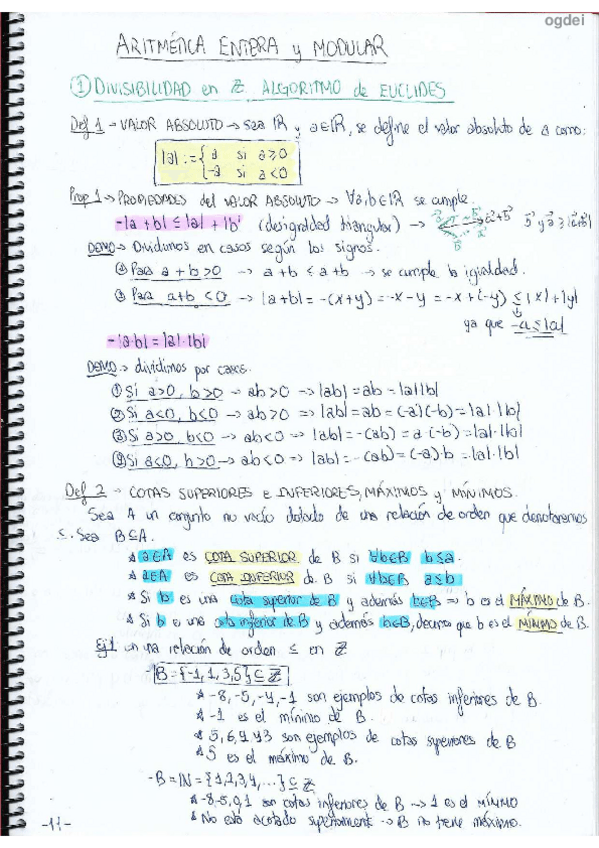 ogdei
ARITMÉTICA ENTERA y MODULAR
① DIVISIBILIDAD en ℤ. ALGORITMO de EUCLIDES
Def 1 → VALOR ABSOLUTO → sea ℝ y a∈ℝ, se define el valor absoluto de a como:
|a| := { a si a≥0
-a si a<0
Prop 1 → PROPIEDADES del VALOR ABSOLUTO → ∀a,b∈ℝ se cumple.
-|a+b| ≤ |a| + |b| (desigualdad triangular) →
DEMO → Dividimos en casos según los signos.
Para a+b>0 → a+b ≤ a+b → se cumple la igualdad.
Para a+b<0 → |a+b| = -(x+y) = -x-y = -x+(-y) ≤ |x|+|y|
ya que -a≤|a|
-|a·b| = |a|·|b|
DEMO → dividimos por casos.
① Si a>0, b>0 → ab>0 → |ab| = ab = |a||b|
② Si a<0, b<0 → ab>0 → |ab| = ab = (-a)(-b) = |a|·|b|
③ Si a>0, b<0 → ab<0 → |ab| = -(ab) = a·(-b) = |a|·|b|
④ Si a<0, b>0 → ab<0 → |ab| = -(ab) = (-a)·b = |a|·|b|
Def 2 → COTAS SUPERIORES e INFERIORES, MÁXIMOS y MÍNIMOS.
Sea A un conjunto no vacío dotado de una relación de orden que denotaremos
≤. Sea B⊆A.
* a∈A es COTA SUPERIOR de B si ∀b∈B b≤a.
* a∈A es COTA INFERIOR de B si ∀b∈B a≤b
* Si b es una cota superior de B y además b∈B ⇒ b es el MÁXIMO de B.
* Si b es una cota inferior de B y además b∈B, decimos que b es el MÍNIMO de B.
Ej 1 una relación de orden ≤ en ℤ
B = {-1,1,3,5} ⊆ ℤ
* -8, -5, -4, -1 son ejemplos de cotas inferiores de B.
* -1 es el mínimo de B.
* 5, 6, 7 y 43 son ejemplos de cotas superiores de B
* 5 es el máximo de B.
-B = ℕ = {1,2,3,4,...} ⊆ ℤ
* -8,-5,0,1 son cotas inferiores de B → 1 es el MÍNIMO
* No está acotado superiormente → B no tiene máximo.
-11-